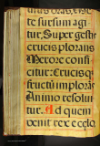 te sursum agi
tur. Super gestu
crucis plorans
Merore confi
citur: Crucisq;
fructū implorat
Animo resolui
tur. Ad quem
venit rex e celo